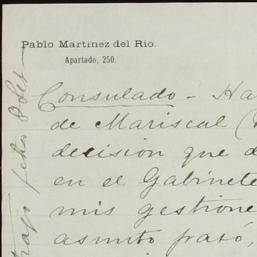 Pablo Martinez del Rio.
Apartado, 250.
Consulado - Ha
de Mariscal (
decision que d
en el Gabinete
mis gestione
asunto pasó,